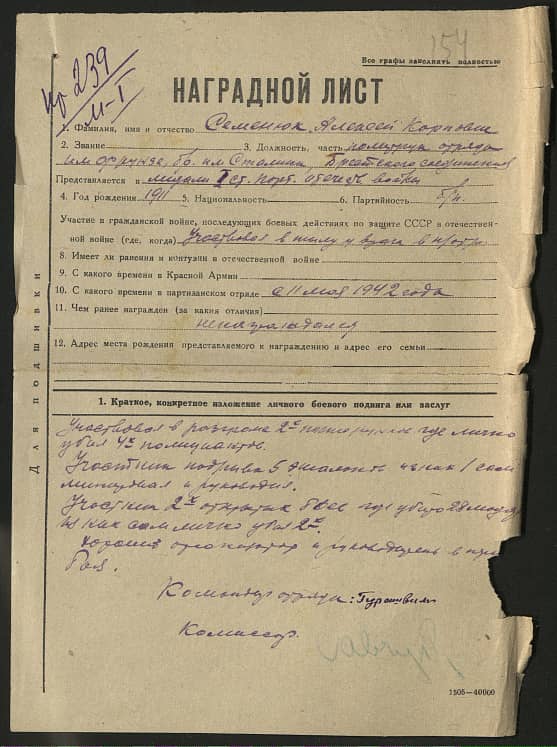 154
Все графы заполнить полностью
пр 239
М-I
НАГРАДНОЙ ЛИСТ
1. Фамилия, имя и отчество Семенюк Алексей Карпович
2. Звание 3. Должность, часть политрук отряда
им Фрунзе, бр. им Сталина Брестского соединения
Представляется к медали I ст. парт. отечеств войны
4. Год рождения 1911 5. Национальность 6. Партийность б/п.
Участие в гражданской войне, последующих боевых действиях по защите СССР в отечествен-
ной войне (где, когда) Участвовал в тылу у врага в
8. Имеет ли ранения и контузии в отечественной войне
9. С какого времени в Красной Армии
10. С какого времени в партизанском отряде с 11 мая 1942 года
11. Чем ранее награжден (за какия отличия)
ненаграждался
12. Адрес места рождения представляемого к награждению и адрес его семьи
Для подшивки
1. Краткое, конкретное изложение личного боевого подвига или заслуг
Участвовал в разгроме 2х где лично
убил 4х полицаитов.
Участник подрыва 5 эшалонов из них 1 сам
минировал и руководил.
Участник 2х открытых боев где убито 28
из них сам лично убил 2х.
хороший и руководитель в
боя.
Командир отряда:
Комиссар
1505—40000